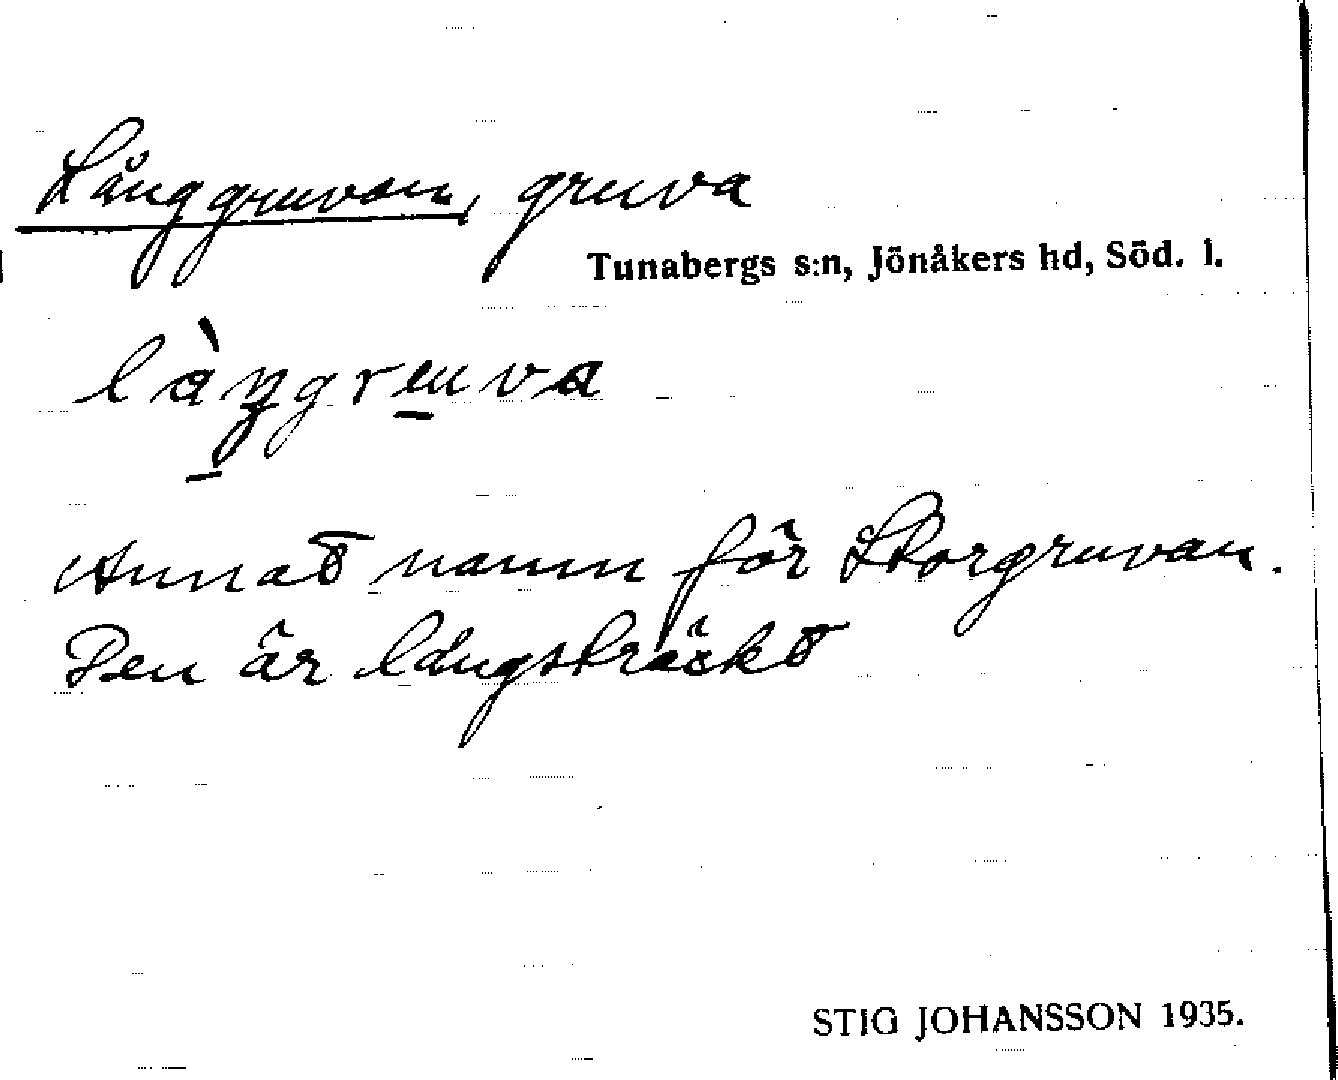 Långgruvan, gruva
Tunabergs s:n, Jönåkers hd, Söd. l.
làŋgruva
Annat namn för Storgruvan.
Den är långsträckt
STIG JOHANSSON 1935.